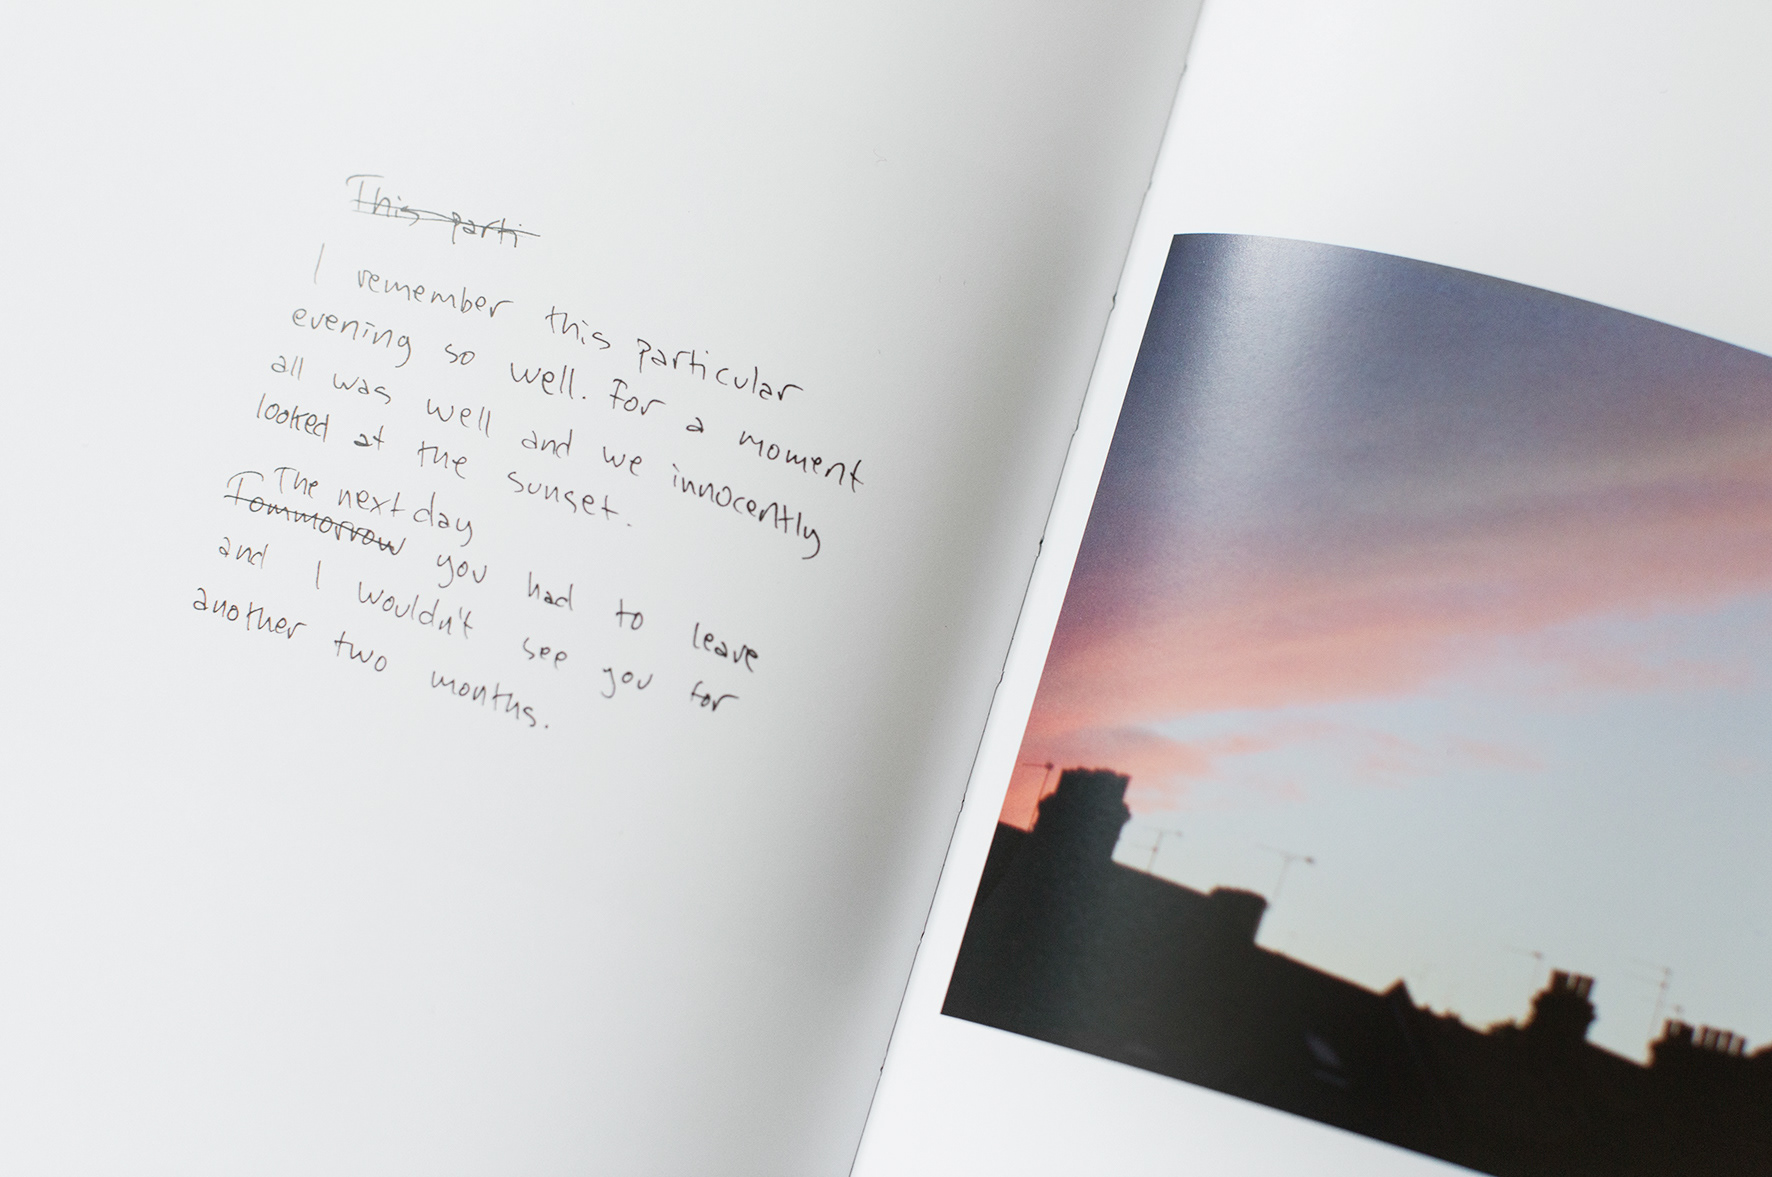 This parti
I remember this particular
evening so well. For a moment
all was well and we innocently
looked at the sunset.
The next day
Tommorrow you had to leave
and I wouldn't see you for
another two months.